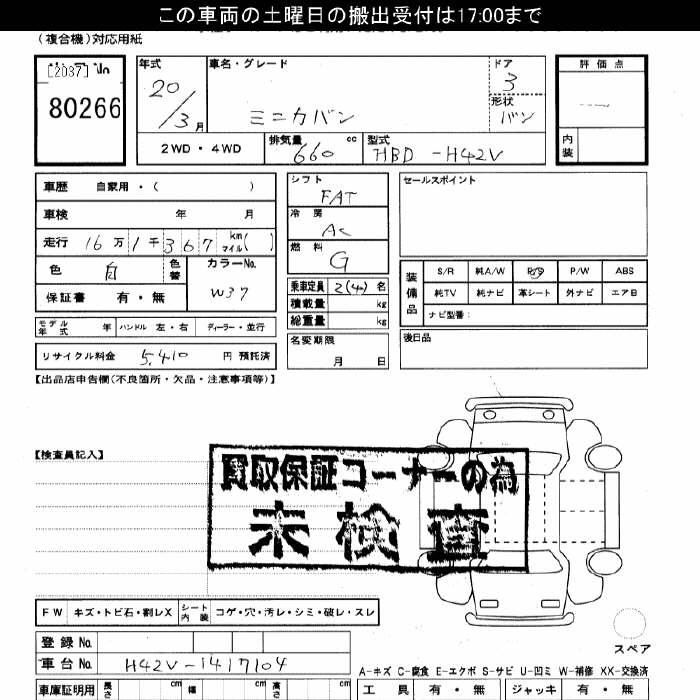 この車両の土曜日の搬出受付は17:00まで
(複合機)対応用紙
[2037] No
80266
年式
20/3 月
車名・グレード
ミニカバン
ドア
3
形状
バン
評価点
内装
2WD・4WD
排気量 660 cc
型式 HBD-H42V
車歴 自家用・( )
車検 年 月
走行 16万1千367 km マイル( )
色 白 色替
カラーNo. W37
保証書 有・無
モデル年式 年 ハンドル 左・右 ディーラー・並行
リサイクル料金 5,410 円 預託済
シフト
FAT
冷房
AC
燃料
G
乗車定員 2(4) 名
積載量 kg
総重量 kg
名変期限
月 日
セールスポイント
装備品
S/R 純A/W P/S P/W ABS
純TV 純ナビ 革シート 外ナビ エアB
ナビ型番:
後日品
【出品店申告欄(不良箇所・欠品・注意事項等)】
【検査員記入】
買取保証コーナーの為
未検査
FW キズ・トビ石・割レX シート内装 コゲ・穴・汚レ・シミ・破レ・スレ
スペア
登録No.
車台No. H42V-1417104
A-キズ C-腐食 E-エクボ S-サビ U-凹ミ W-補修 XX-交換済
車庫証明用 長さ cm 幅 cm 高さ cm
工具 有・無 ジャッキ 有・無